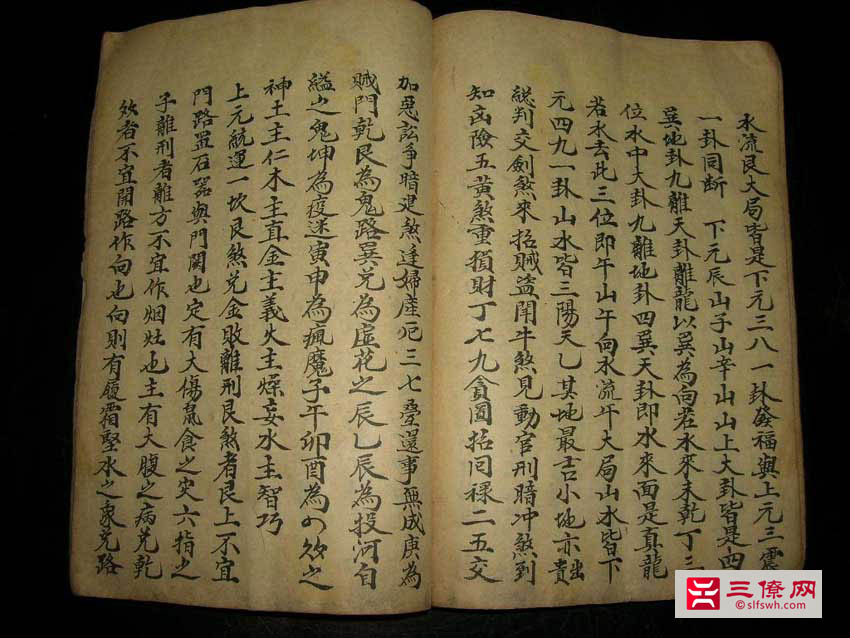 水流艮大局皆是下元三八一卦發福與上元三震
一卦同断 下元辰山子山辛山山上大卦皆是四
巽地卦九離天卦離龍以巽為向若水來未乾丁三
位水中大卦九離地卦四巽天卦即水來面是真龍
若水去此三位即午山午向水流午大局山水皆下
元四九一卦山水皆三陽天乙其地最吉小地亦貴
総判交劍煞來招賊盜鬥牛煞見動官刑暗冲煞到
知凶險五黄煞重損財丁七九貪圖招同祼二五交
加惡訟爭暗建煞逢婦產死三七疊還事無成庚為
賊門乾艮為鬼路巽兑為虛花之辰乙辰為投河自
縊之鬼坤為疫迷寅申為瘋魔子午卯酉為
神土主仁木主直金主義火主燥妄水主智巧
上元統運一坎艮煞兑金敗離刑艮煞者艮上不宜
門路置石器與門関也定有大傷鼠食之灾六指之
子離刑者離方不宜作烟灶也主有大腹之病兑乾
敗者不宜開路作向也向則有履霜堅水之象兑路
三僚网
slfswh.com